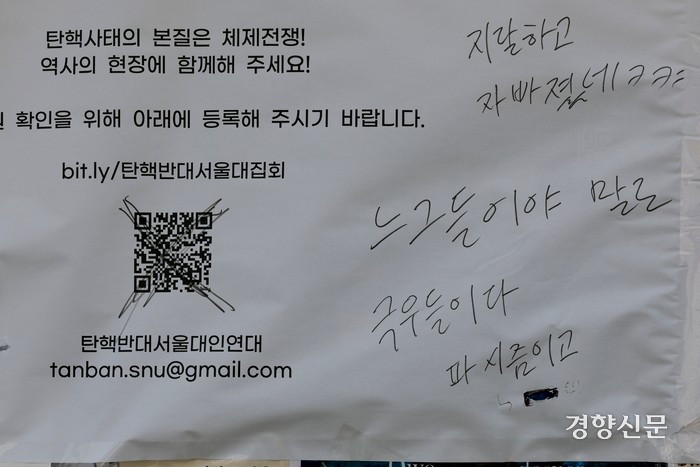 탄핵사태의 본질은 체제전쟁!
역사의 현장에 함께해 주세요!
확인을 위해 아래에 등록해 주시기 바랍니다.
bit.ly/탄핵반대서울대집회
탄핵반대서울대인연대
tanban.snu@gmail.com
지랄하고
자빠졌네ㅋㅋㅋ
느그들이야 말로
극우들이다
파시즘이고
경향신문